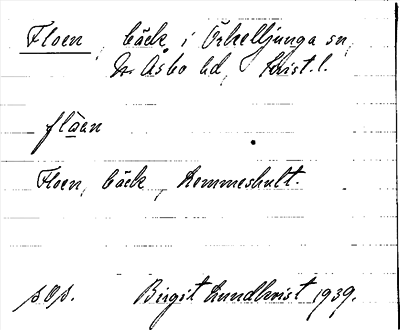 Floen, bäck i Örkelljunga sn,
N. Åsbo hd, Krist. l.
flåen
Floen, bäck, Lemmeshult.
s o s. Birgit Lundkvist 1939.